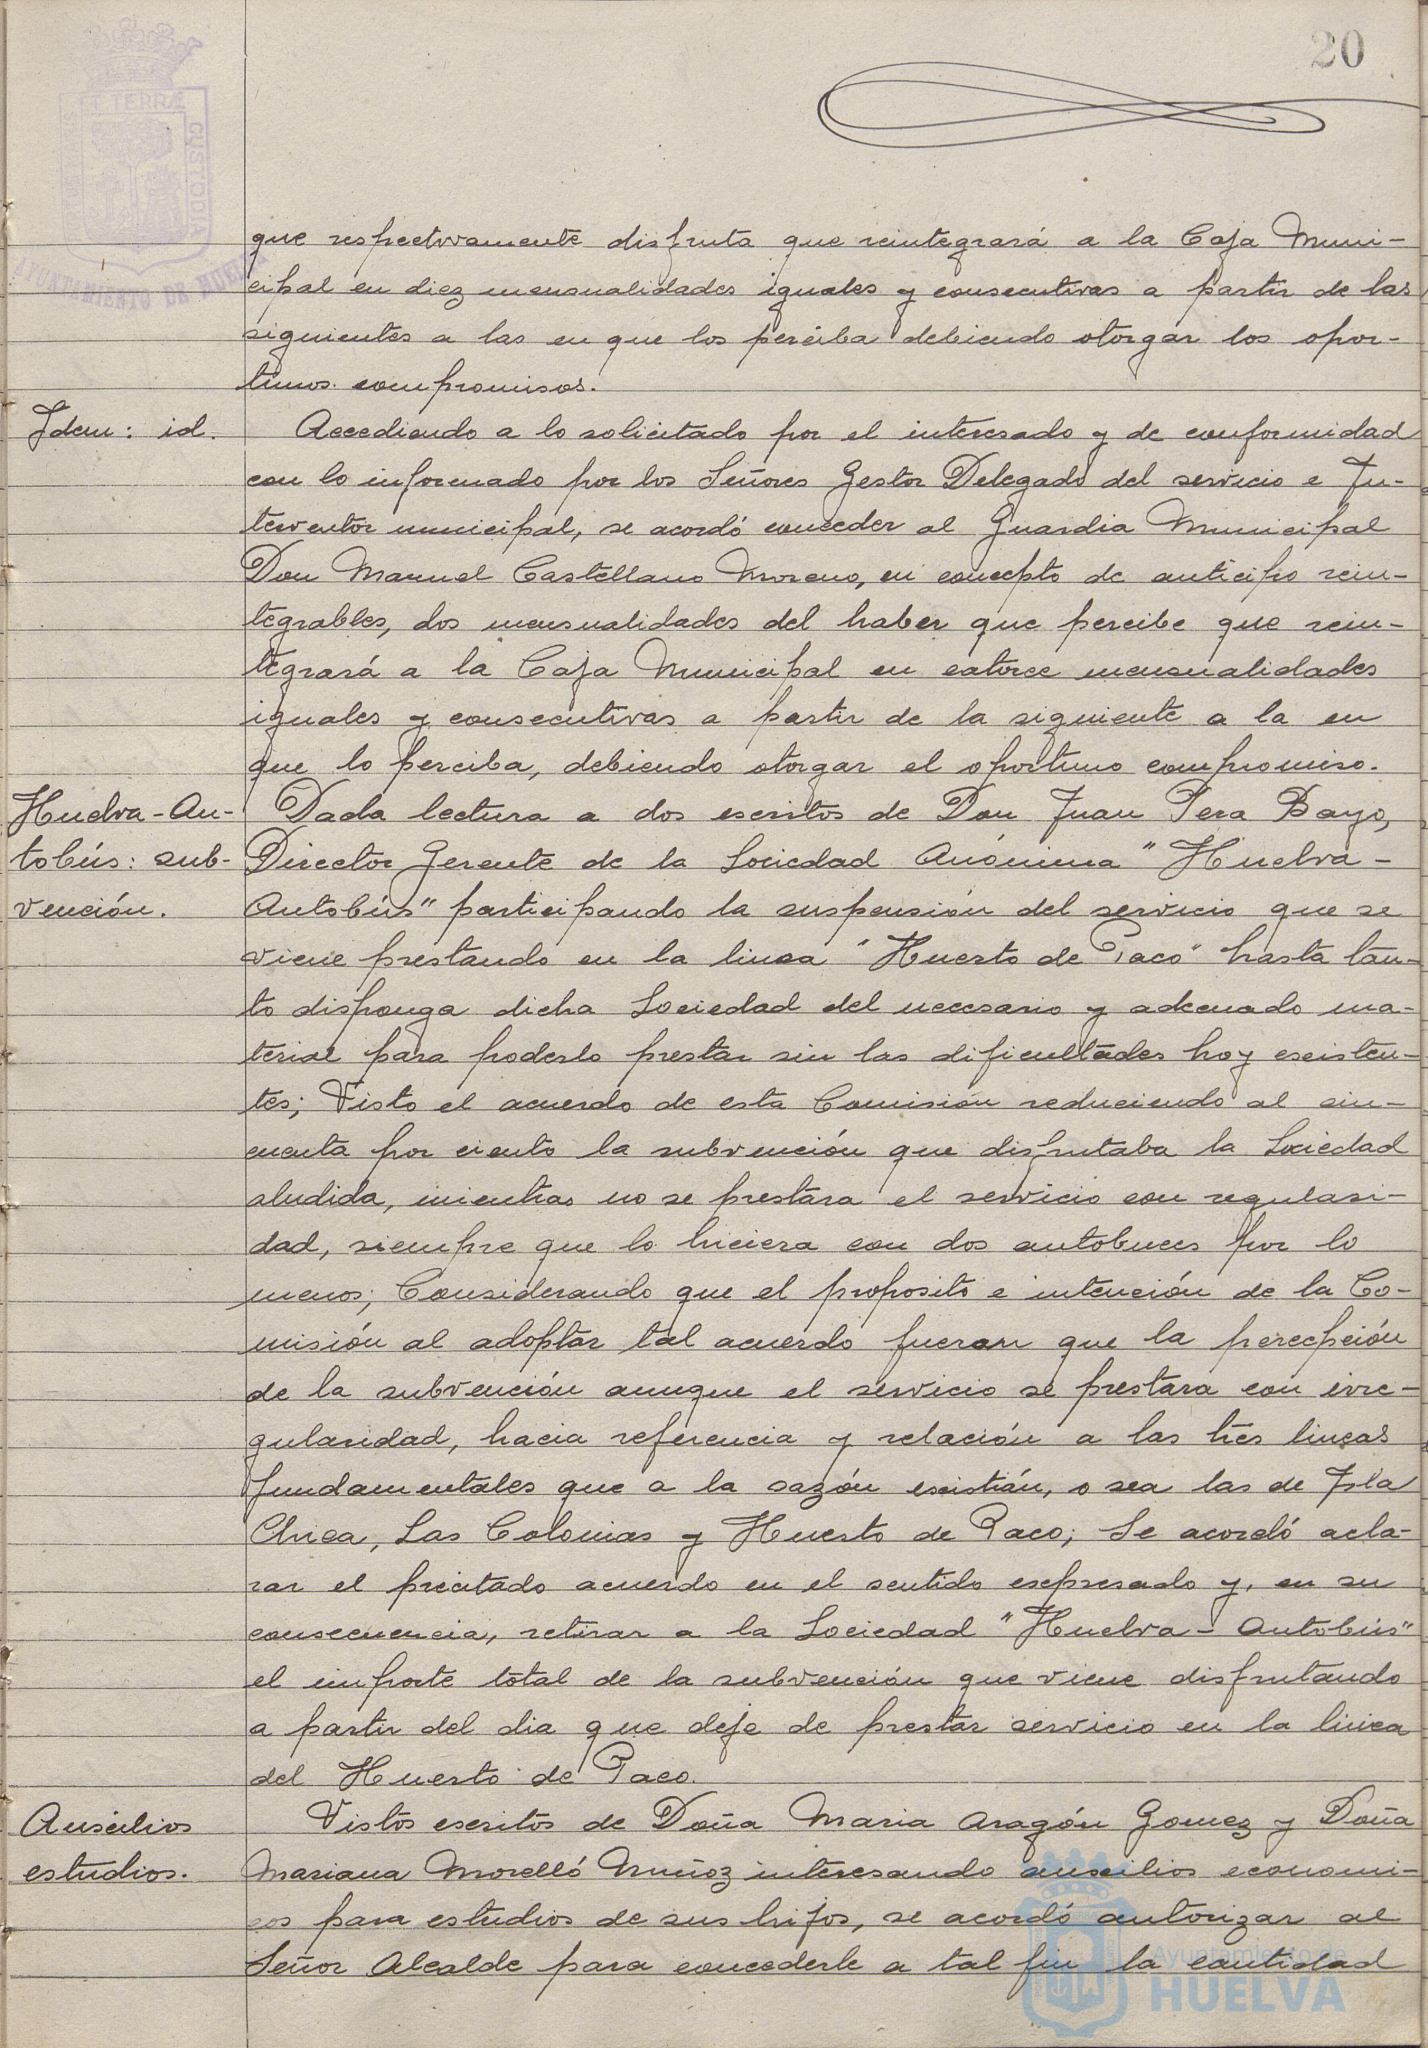 20
PORTUS MARIS ET TERRÆ CUSTODIA
AYUNTAMIENTO DE HUELVA
que respectivamente disfruta que reintegrará a la Caja Muni-
cipal en diez mensualidades iguales y consecutivas a partir de las
siguientes a las en que los perciba debiendo otorgar los opor-
tunos compromisos.
Idem: id.
Accediendo a lo solicitado por el interesado y de conformidad
con lo informado por los Señores Gestor Delegado del servicio e In-
terventor municipal, se acordó conceder al Guardia Municipal
Don Manuel Castellano Moreno, en concepto de anticipo rein-
tegrables, dos mensualidades del haber que percibe que rein-
tegrará a la Caja Municipal en catorce mensualidades
iguales y consecutivas a partir de la siguiente a la en
que lo perciba, debiendo otorgar el oportuno compromiso.
Huelva-Au-
tobús: sub-
vención.
Dada lectura a dos escritos de Don Juan Pera Bayo,
Director Gerente de la Sociedad Anónima "Huelva-
Autobús" participando la suspensión del servicio que se
viene prestando en la linea "Huerto de Paco" hasta tan-
to disponga dicha Sociedad del necesario y adecuado ma-
terial para poderlo prestar sin las dificultades hoy existen-
tes; Visto el acuerdo de esta Comisión reduciendo al cin-
cuenta por ciento la subvención que disfrutaba la Sociedad
aludida, mientras no se prestara el servicio con regulari-
dad, siempre que lo hiciera con dos autobuses por lo
menos; Considerando que el proposito e intención de la Co-
misión al adoptar tal acuerdo fueran que la percepción
de la subvención aunque el servicio se prestara con irre-
gularidad, hacia referencia y relación a las tres lineas
fundamentales que a la sazón existián, o sea las de Isla
Chica, Las Colonias y Huerto de Paco; Se acordó acla-
rar el precitado acuerdo en el sentido expresado y, en su
consecuencia, retirar a la Sociedad "Huelva-Autobús"
el importe total de la subvención que viene disfrutando
a partir del dia que deje de prestar servicio en la linea
del Huerto de Paco.
Auxilios
estudios.
Vistos escritos de Doña Maria Aragón Gomez y Doña
Mariana Morelló Muñoz interesando auxilios economi-
cos para estudios de sus hijos, se acordó autorizar al
Señor Alcalde para concederle a tal fin la cantidad
Ayuntamiento de
HUELVA